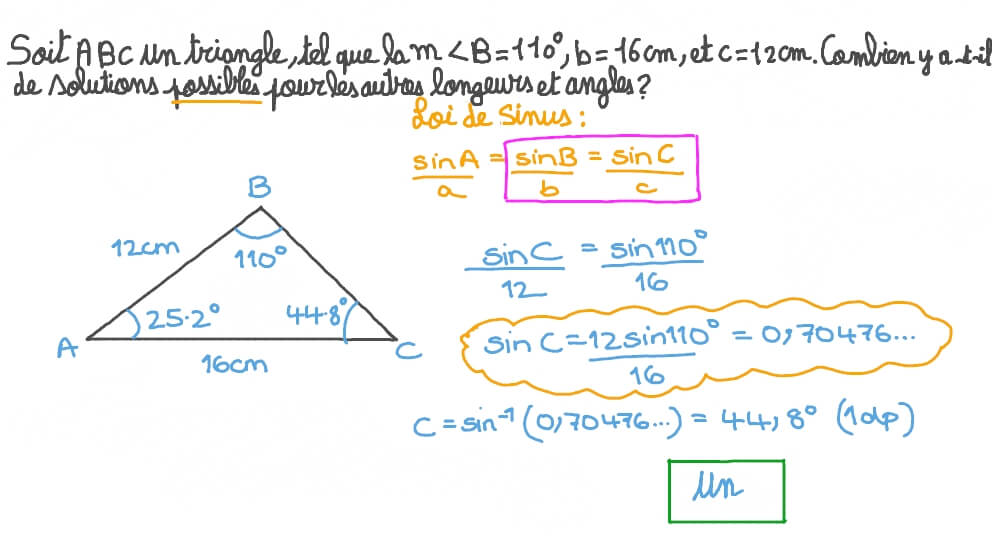 Soit ABC un triangle, tel que la m <B=110°, b=16cm, et c=12cm. Combien y a-t-il
de solutions possibles pour les autres longeurs et angles?
Loi de Sinus :
sin A / a = sin B / b = sin C / c
B
12cm
110°
sin C / 12 = sin 110° / 16
25.2°
44.8°
A
C
16cm
sin C = 12 sin 110° / 16 = 0,70476...
C = sin⁻¹ (0,70476...) = 44,8° (1dp)
Un